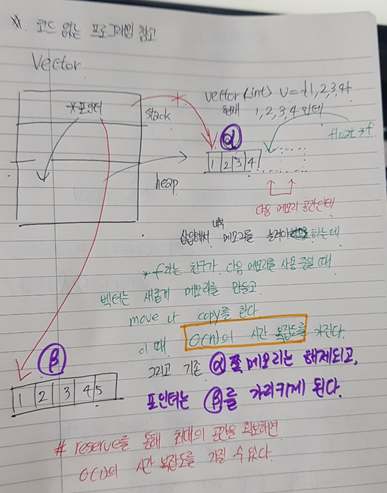 ※ 코드 없는 프로그래밍 참고
Vector
*포인터
stack
heap
vector<int> v = {1,2,3,4}
현재 1,2,3,4 인데
α
1 2 3 4
float *f
다음 메모리 공간인데
삽입해서 메모리를 늘려야 하는데
*f라는 친구가 다음 메모리를 사용 중일 때
벡터는 새롭게 메모리를 만들고
move나 copy를 한다
이 때 O(n)의 시간 복잡도를 가진다.
그리고 기존 α 메모리는 해제되고,
포인터는 β를 가리키게 된다.
β
1 2 3 4 5
# reserve를 통해 최대의 공간을 확보하면
O(1)의 시간 복잡도를 가질 수 있다.